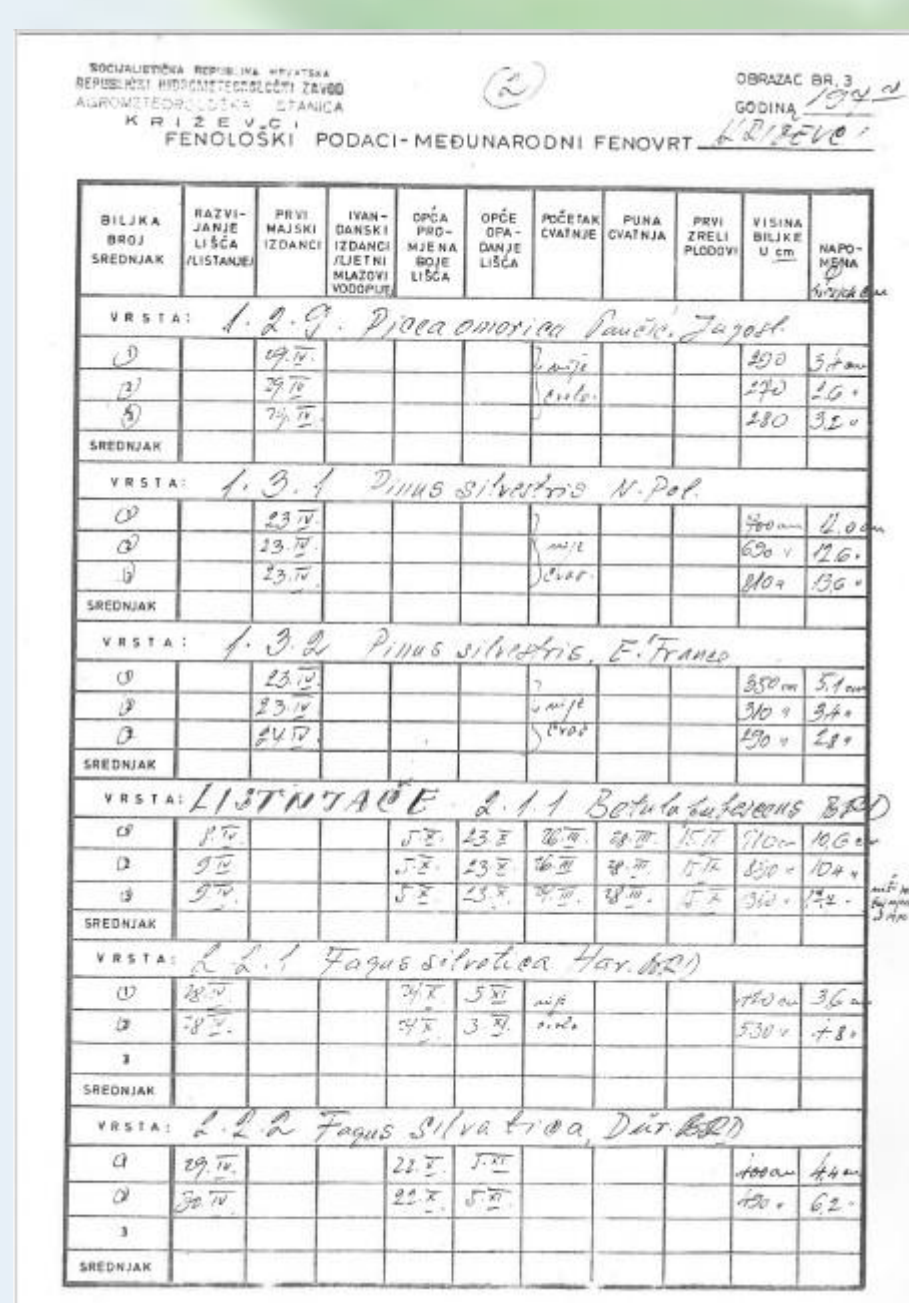 SOCIJALISTIČKA REPUBLIKA HRVATSKA
REPUBLIČKI HIDROMETEOROLOŠKI ZAVOD
AGROMETEOROLOŠKA STANICA
KRIŽEVCI
②
OBRAZAC BR. 3
GODINA
FENOLOŠKI PODACI-MEĐUNARODNI FENOVRT KRIŽEVCI
BILJKA BROJ SREDNJAK | RAZVIJANJE LIŠĆA /LISTANJE/ | PRVI MAJSKI IZDANCI | IVANDANSKI IZDANCI /LJETNI MLAZOVI VODOPUE/ | OPĆA PROMJENA BOJE LIŠĆA | OPĆE OPADANJE LIŠĆA | POČETAK CVATNJE | PUNA CVATNJA | PRVI ZRELI PLODOVI | VISINA BILJKE U cm | NAPOMENA
VRSTA: 1.2.9. Picea omorica Pančić. Jugosl.
① 29.IV. nije 290 3,4 cm
② 29.IV cvalo. 270 2.6 "
③ 29.IV 280 3.2 "
SREDNJAK
VRSTA: 1.3.1 Pinus silvestris N. Pol.
① 23 IV. 12.0 cm
② 23.IV. nije 690 " 12.6 "
③ 23.IV. cvao. 810 " 13,6 "
SREDNJAK
VRSTA: 1.3.2 Pinus silvestris, E. France
① 23.IV. 350 cm 5.1 cm
② 23 IV. nije 310 " 3,4 "
③ 24 IV. cvao 290 " 2.8 "
SREDNJAK
VRSTA: LISTNJAČE 2.1.1 Betula pubescens BRD
① 8.IV. 5.X. 23.X 26.III. 28.III. 10,6 cm
② 9 IV 5.X. 23 X 26.III 28.III.
③ 9 IV. 5 X. 23.X. 28.III.
SREDNJAK
VRSTA: 2.2.1 Fagus silvatica Har. BRD
① 28.IV 5 XI nije 3,6 cm
② 28 IV. 3 XI. cvalo 530 "
3
SREDNJAK
VRSTA: 2.2.2 Fagus silvatica, Dür. BRD
① 29.IV. 22.X. 5.XI 400 cm 4,4 cm
② 30.IV 22.X. 5.XI 490 " 6,2 "
3
SREDNJAK